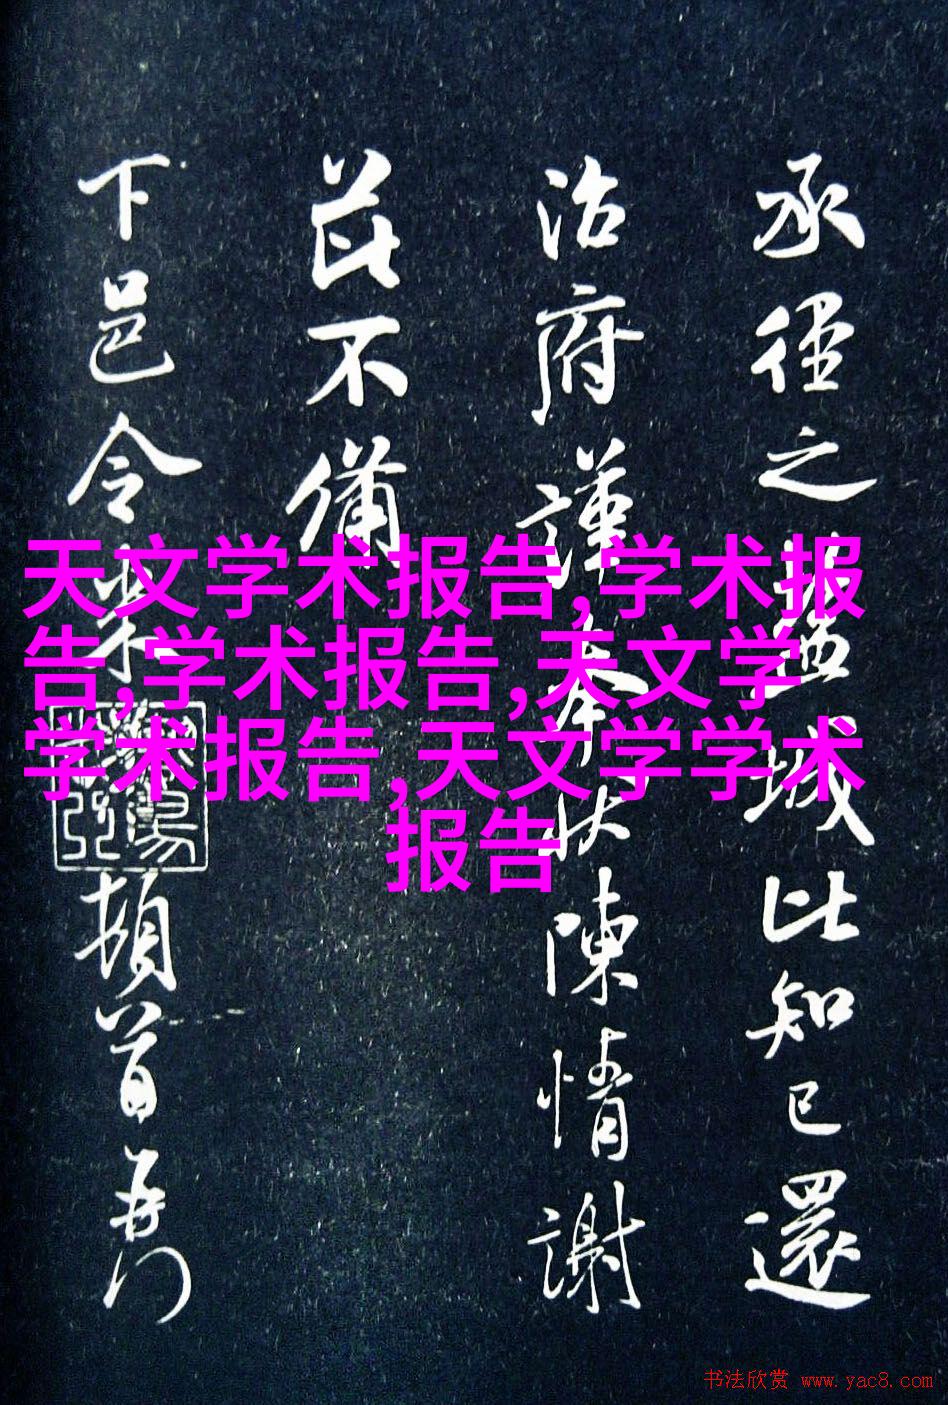 承徑之盐城比知已還
治府謹奉狀陳情謝
兹不備
下邑令米頓首再拜
天文学术报告,学术报
告,学术报告,天文学
学术报告,天文学学术
报告
书法欣赏 www.yac8.com